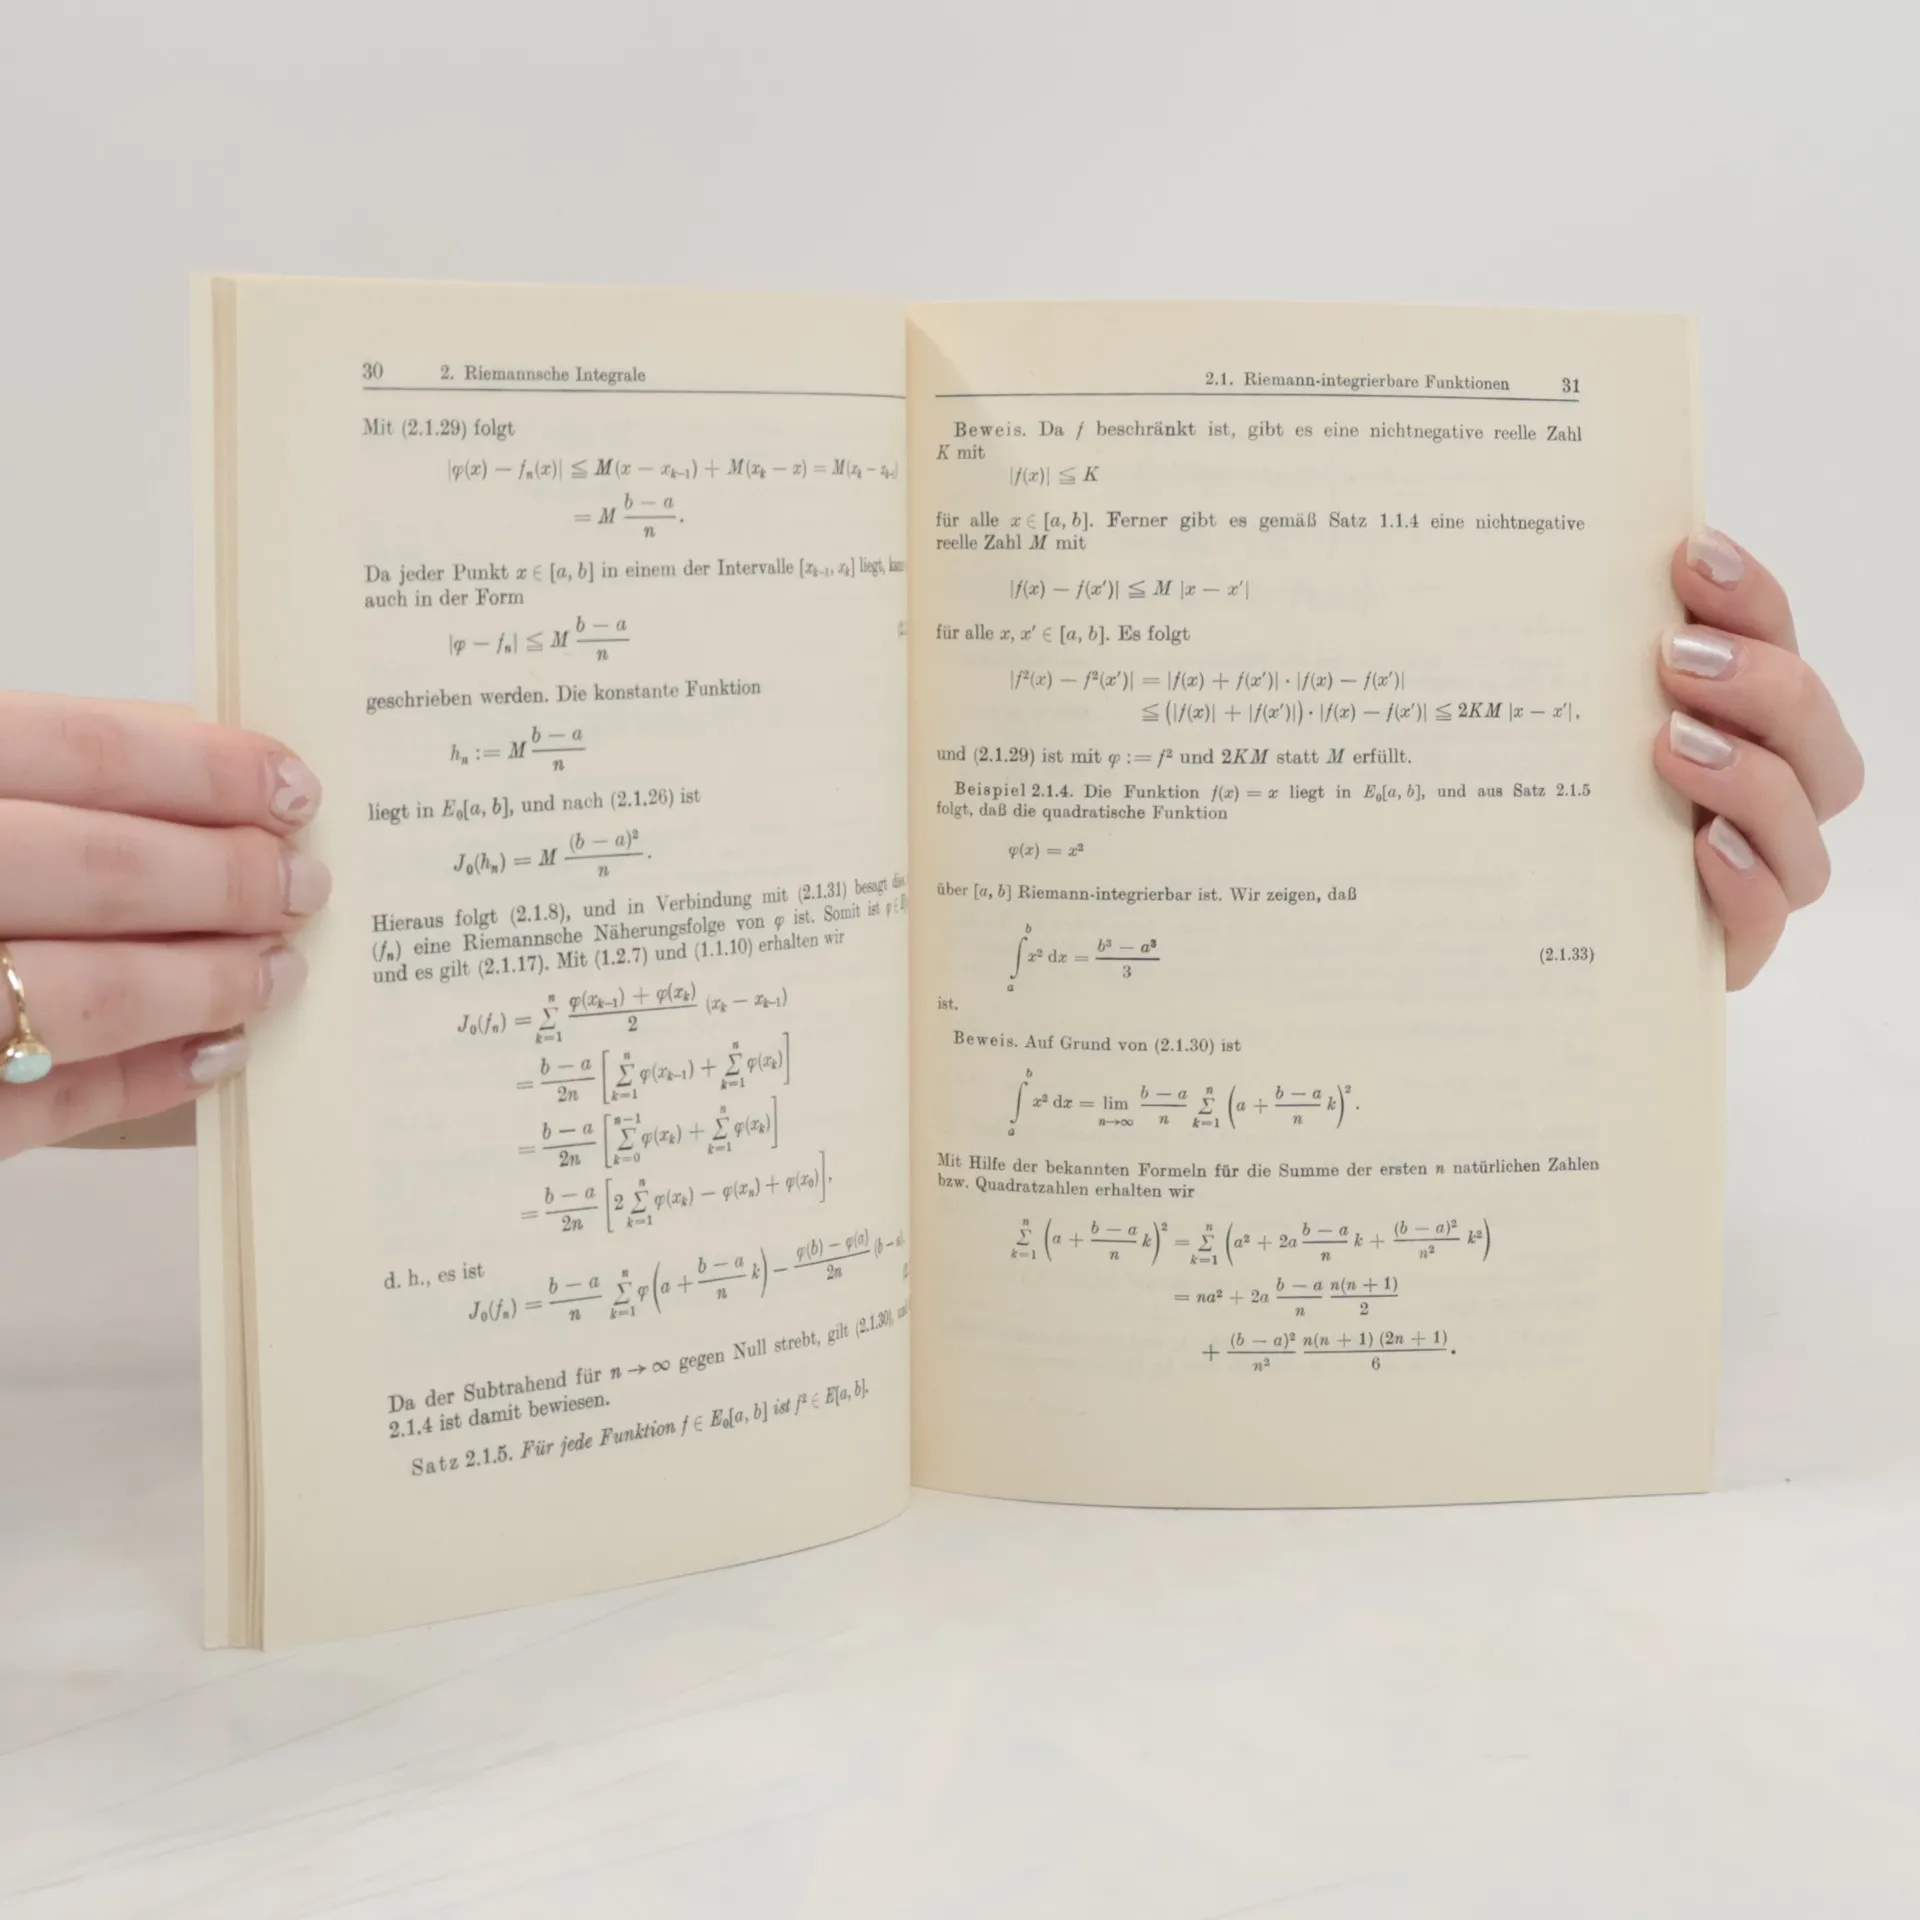 30 2. Riemannsche Integrale
Mit (2.1.29) folgt
|φ(x) − fₙ(x)| ≦ M(x − xₖ₋₁) + M(xₖ − x) = M(xₖ − xₖ₋₁)
= M (b − a)/n.
Da jeder Punkt x ∈ [a, b] in einem der Intervalle [xₖ₋₁, xₖ] liegt,
auch in der Form
|φ − fₙ| ≦ M (b − a)/n
geschrieben werden. Die konstante Funktion
hₙ := M (b − a)/n
liegt in E₀[a, b], und nach (2.1.26) ist
J₀(hₙ) = M (b − a)²/n.
Hieraus folgt (2.1.8), und in Verbindung mit (2.1.31) besagt
(fₙ) eine Riemannsche Näherungsfolge von φ ist. Somit ist φ ∈
und es gilt (2.1.17). Mit (1.2.7) und (1.1.10) erhalten wir
J₀(fₙ) = ∑ₖ₌₁ⁿ (φ(xₖ₋₁) + φ(xₖ))/2 (xₖ − xₖ₋₁)
= (b − a)/2n [∑ₖ₌₁ⁿ φ(xₖ₋₁) + ∑ₖ₌₁ⁿ φ(xₖ)]
= (b − a)/2n [∑ₖ₌₀ⁿ⁻¹ φ(xₖ) + ∑ₖ₌₁ⁿ φ(xₖ)]
= (b − a)/2n [2 ∑ₖ₌₁ⁿ φ(xₖ) − φ(xₙ) + φ(x₀)],
d. h., es ist
J₀(fₙ) = (b − a)/n ∑ₖ₌₁ⁿ φ(a + (b − a)/n k) − (φ(b) − φ(a))/2n (b − a).
Da der Subtrahend für n → ∞ gegen Null strebt, gilt (2.1.30),
2.1.4 ist damit bewiesen.
Satz 2.1.5. Für jede Funktion f ∈ E₀[a, b] ist f² ∈ E[a, b].
2.1. Riemann-integrierbare Funktionen 31
Beweis. Da f beschränkt ist, gibt es eine nichtnegative reelle Zahl
K mit
|f(x)| ≦ K
für alle x ∈ [a, b]. Ferner gibt es gemäß Satz 1.1.4 eine nichtnegative
reelle Zahl M mit
|f(x) − f(x′)| ≦ M |x − x′|
für alle x, x′ ∈ [a, b]. Es folgt
|f²(x) − f²(x′)| = |f(x) + f(x′)| · |f(x) − f(x′)|
≦ (|f(x)| + |f(x′)|) · |f(x) − f(x′)| ≦ 2KM |x − x′|,
und (2.1.29) ist mit φ := f² und 2KM statt M erfüllt.
Beispiel 2.1.4. Die Funktion f(x) = x liegt in E₀[a, b], und aus Satz 2.1.5
folgt, daß die quadratische Funktion
φ(x) = x²
über [a, b] Riemann-integrierbar ist. Wir zeigen, daß
∫ₐᵇ x² dx = (b³ − a³)/3 (2.1.33)
ist.
Beweis. Auf Grund von (2.1.30) ist
∫ₐᵇ x² dx = lim n→∞ (b − a)/n ∑ₖ₌₁ⁿ (a + (b − a)/n k)².
Mit Hilfe der bekannten Formeln für die Summe der ersten n natürlichen Zahlen
bzw. Quadratzahlen erhalten wir
∑ₖ₌₁ⁿ (a + (b − a)/n k)² = ∑ₖ₌₁ⁿ (a² + 2a (b − a)/n k + (b − a)²/n² k²)
= na² + 2a (b − a)/n n(n + 1)/2
+ (b − a)²/n² n(n + 1) (2n + 1)/6.